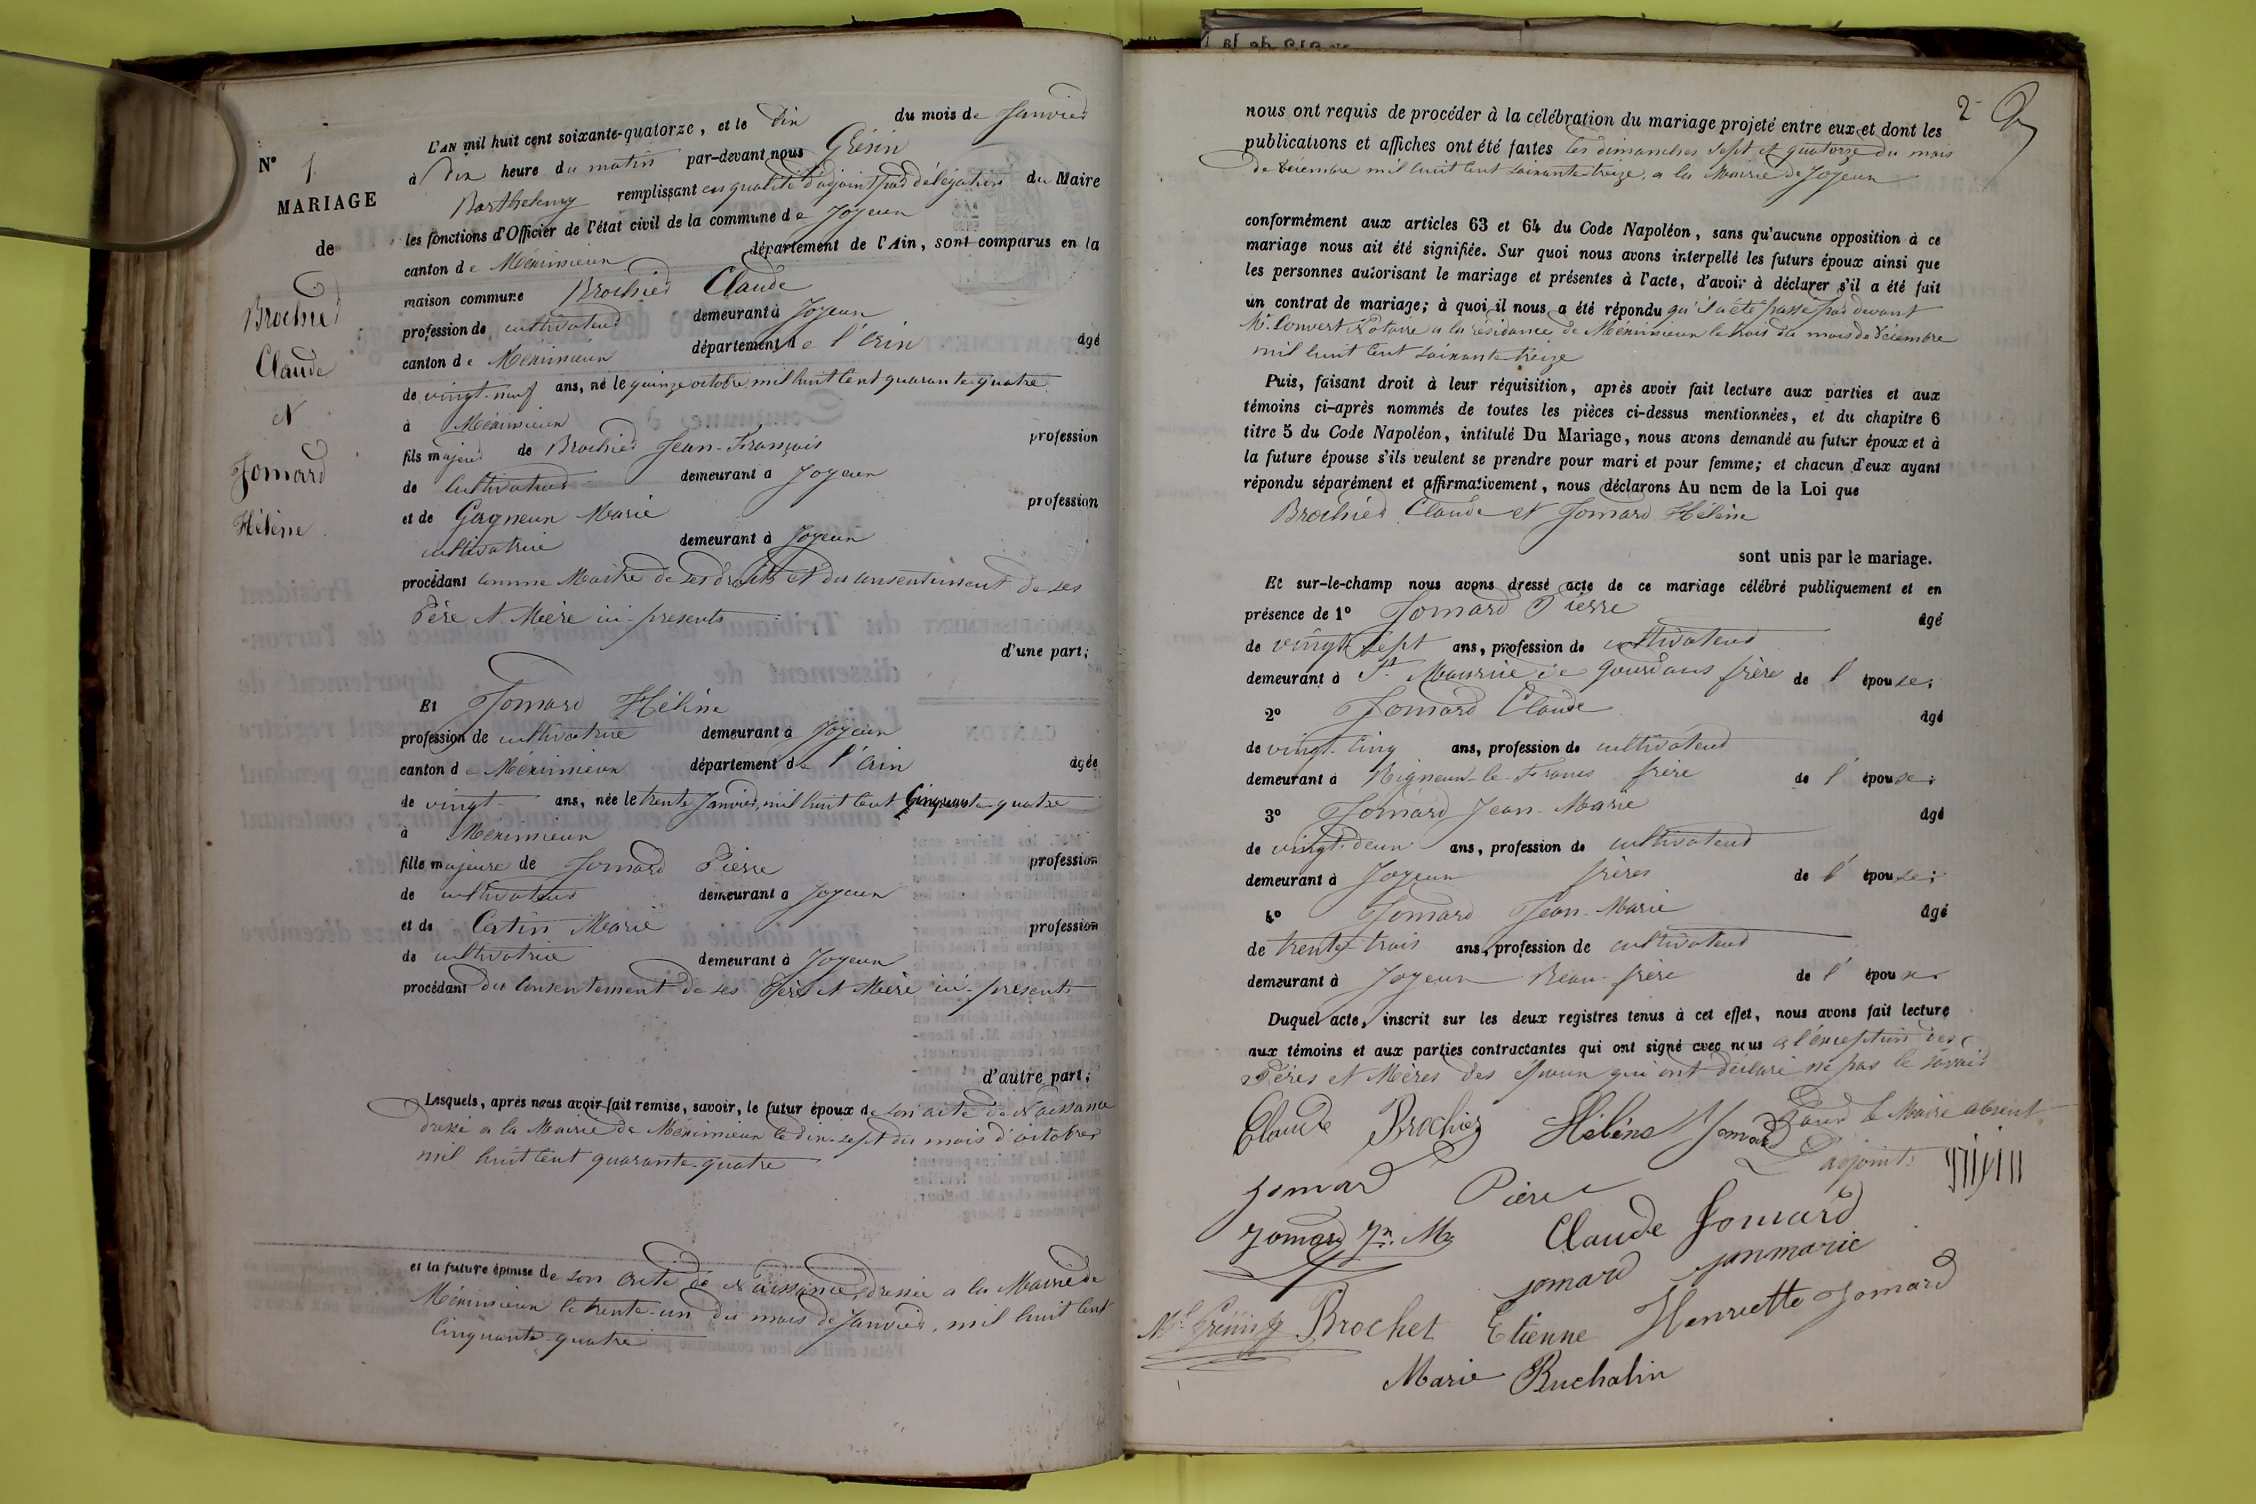 N° 1
MARIAGE
de
Brochier
Claude
et
Jomard
Hélène
L'AN mil huit cent soixante-quatorze, et le dix du mois de Janvier
à dix heure du matin par-devant nous Grésin
Barthelemy remplissant en qualité d'adjoint par délégation du Maire
les fonctions d'Officier de l'état civil de la commune de Joyeux
canton de Méximieux département de l'Ain, sont comparus en la
maison commune Brochier Claude
profession de cultivateur demeurant à Joyeux
canton de Méximieux département de l'Ain âgé
de vingt-neuf ans, né le quinze octobre mil huit cent quarante quatre
à Méximieux
fils majeur de Brochier Jean-François profession
de cultivateur demeurant à Joyeux
et de Gagneux Marie profession
cultivatrice demeurant à Joyeux
procédant comme Maître de ses droits et du consentement de ses
Père et Mère ici-présents
d'une part;
Et Jomard Hélène
profession de cultivatrice demeurant à Joyeux
canton de Méximieux département de l'Ain âgée
de vingt ans, née le trente Janvier mil huit cent Cinquante-quatre
à Méximieux
fille majeure de Jomard Pierre profession
de cultivateur demeurant à Joyeux
et de Catin Marie profession
de cultivatrice demeurant à Joyeux
procédant du consentement de ses Père et Mère ici-présents
d'autre part;
Lesquels, après nous avoir fait remise, savoir, le futur époux de son acte de Naissance
dressé a la Mairie de Méximieux le dix-sept du mois d'octobre
mil huit cent quarante-quatre
et la future épouse de son acte de Naissance, dressée a la Mairie de
Méximieux le trente-un du mois de Janvier, mil huit cent
Cinquante-quatre
2
nous ont requis de procéder à la célébration du mariage projeté entre eux et dont les
publications et affiches ont été faites les dimanches sept et quatorze du mois
de Décembre mil huit cent soixante treize, a la Mairie de Joyeux
conformément aux articles 63 et 64 du Code Napoléon, sans qu'aucune opposition à ce
mariage nous ait été signifiée. Sur quoi nous avons interpellé les futurs époux ainsi que
les personnes autorisant le mariage et présentes à l'acte, d'avoir à déclarer s'il a été fait
un contrat de mariage; à quoi il nous a été répondu qu'il a été passé par devant
Mr. Convert Notaire a la résidance de Méximieux le trois du mois de Décembre
mil huit cent soixante-treize
Puis, faisant droit à leur réquisition, après avoir fait lecture aux parties et aux
témoins ci-après nommés de toutes les pièces ci-dessus mentionnées, et du chapitre 6
titre 5 du Code Napoléon, intitulé Du Mariage, nous avons demandé au futur époux et à
la future épouse s'ils veulent se prendre pour mari et pour femme; et chacun d'eux ayant
répondu séparément et affirmativement, nous déclarons Au nom de la Loi que
Brochier Claude et Jomard Hélène
sont unis par le mariage.
Et sur-le-champ nous avons dressé acte de ce mariage célébré publiquement et en
présence de 1° Jomard Pierre âgé
de vingt sept ans, profession de cultivateur
demeurant à St. Maurice de Gourdans frère de l'épouse;
2° Jomard Claude âgé
de vingt-cinq ans, profession de cultivateur
demeurant à Rigneux-le-Franc frère de l'épouse;
3° Jomard Jean-Marie âgé
de vingt-deux ans, profession de cultivateur
demeurant à Joyeux frères de l'épouse;
4° Jomard Jean-Marie âgé
de trente-trois ans, profession de cultivateur
demeurant à Joyeux Beau-frère de l'épouse
Duquel acte, inscrit sur les deux registres tenus à cet effet, nous avons fait lecture
aux témoins et aux parties contractantes qui ont signé avec nous a l'exception des
Pères et Mères des époux qui ont déclaré ne pas le savoir
Claude Brochier Hélène Jomard Pour le Maire absent
L'adjoint
jomard Piere
Jomard Jn. M Claude Jomard
jomard janmarie
Brochet Etienne Henriette Jomard
Marie Ruchalin